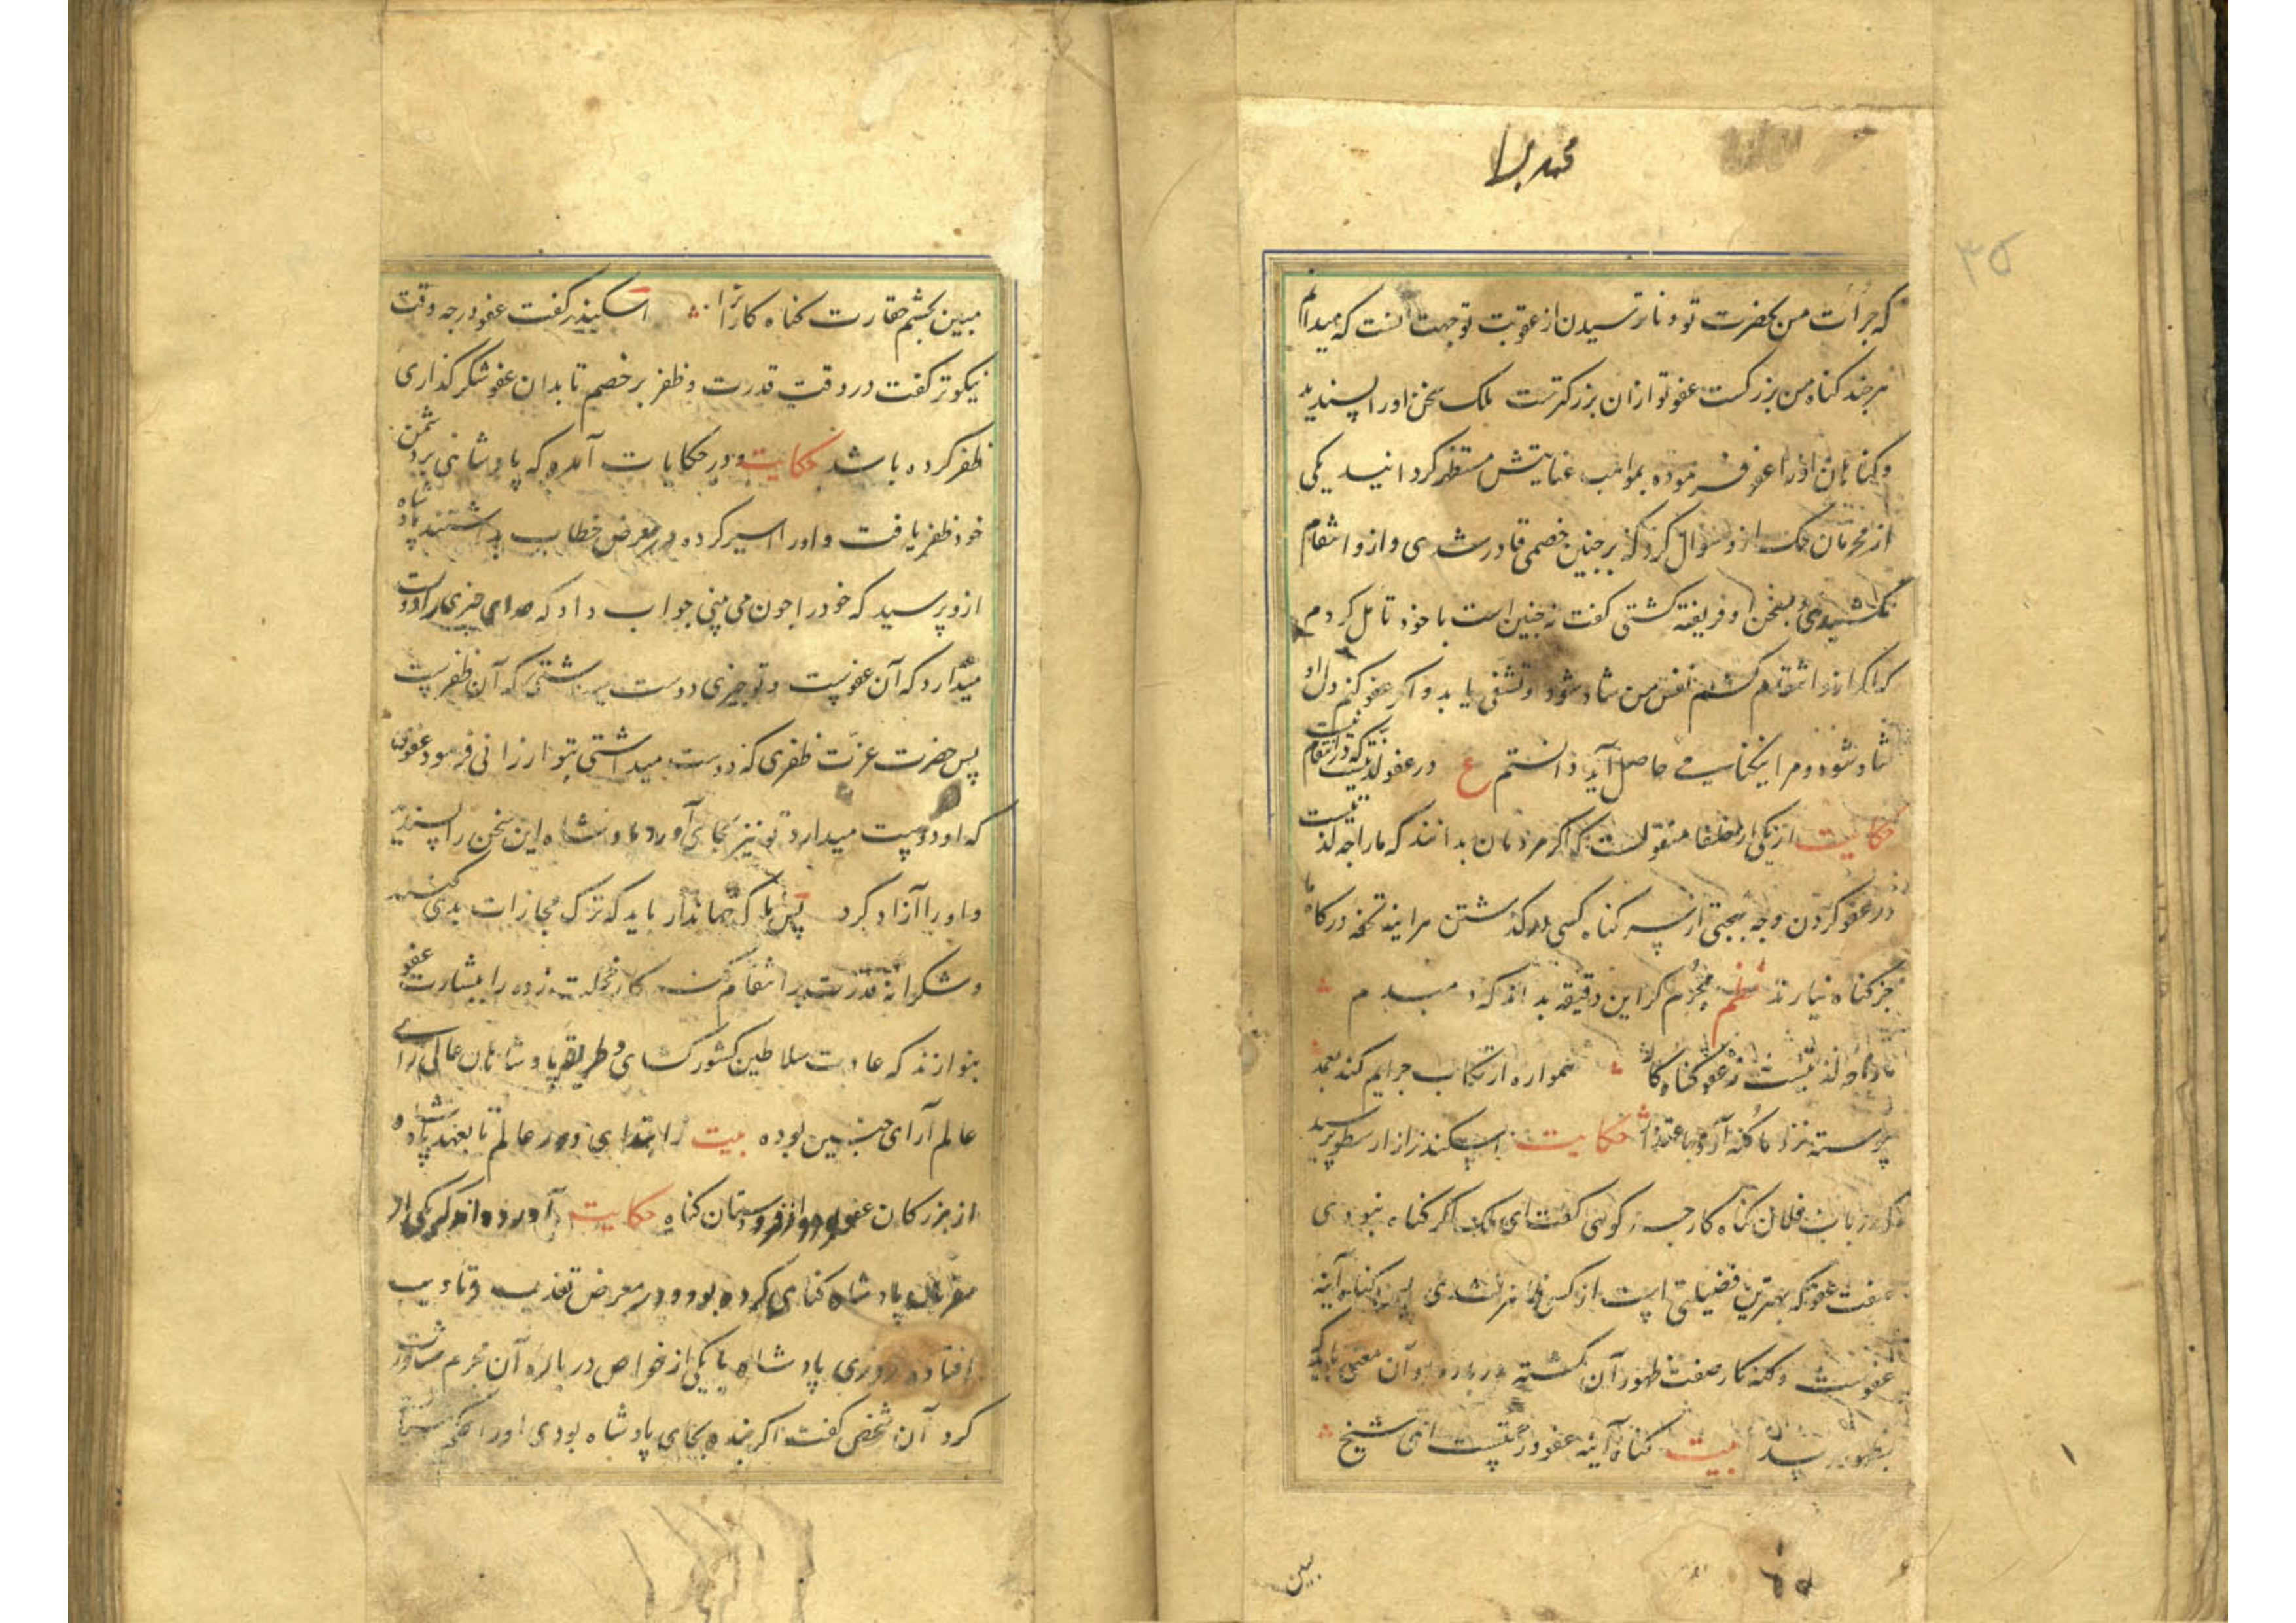 محمد رسا
۳۵
که جرأت من بحضرت تو و ناترسیدن از عقوبت تو جهت آنست که میدانم
هر چند کناه من بزرکست عفو تو از ان بزرکترست ملک سخن او را پسندید
و کناهان او را عفو فرموده بمواهب عنایتش مستظهر کردانید یکی
از محرمان ملک ازو سؤال کرد که بر چنین خصمی قادر شدی و ازو انتقام
نکشیدی و بسخن او فریفته کشتی کفت نه چنین است با خود تأمل کردم
که اکر ازو انتقام کشم نفس من شاد شود و تشفی یابد و اکر عفو کنم دل او
شاد شود و مرا نیکنامی حاصل آید دانستم ع در عفو لذتیست که در انتقام نیست
حکایت از یکی از خلفا منقولست که اکر مردمان بدانند که ما را چه لذتیست
در عفو کردن و چه بهجتی از سر کناه کسی در کذشتن هر اینه تحفه درکاه ما
جز کناه نیارند نظم مجرم کر این دقیقه بداند که دمبدم
ما را چه لذتیست ز عفو کناه کار همواره ارتکاب جرایم کند بعمد
پیوسته نزد ما کنه آرد باعتذار حکایت اسکندر از ارسطو پرسید
که در باب فلان کناه کار چه کوئی کفت ای ملک اکر کناه نبودی
صفت عفو که بهترین فضیلتی است از کس ظاهر نشدی پس کناه آینه
عفو ست و کنه کار صفت ظهور آن کشته در باره او آن معنی باید که
بظهور رسد بیت کناه آینه عفو و رحمتست ای شیخ
ببین
مبین بچشم حقارت کناه کارانرا اسکندر کفت عفو در چه وقت
نیکوتر کفت در وقت قدرت و ظفر بر خصم تا بدان عفو شکر کذاری
ظفر کرده باشد حکایت و در حکایات آمده که پادشاهی بر دشمن
خود ظفر یافت و او را اسیر کرده در معرض خطاب بداشتند پادشاه
ازو پرسید که خود را چون می بینی جواب داد که خدای چیزی را دوست
میدارد که آن عفوست و تو چیزی دوست میداشتی که آن ظفرست
پس حضرت عزت ظفری که دوست میداشتی بتو ارزانی فرمود عفوی
که او دوست میدارد تو نیز بجای آور پادشاه این سخن را پسندیده
و او را آزاد کرد پس ملک جهاندار باید که ترک مجازات بدی کند
و شکرانه قدرت بر انتقام کنه کار خجلت زده را ببشارت عفو
بنوازند که عادت سلاطین کشور کشای و طریقه پادشاهان عالی رای
عالم آرای چنین بوده بیت ز ابتدای دور عالم تا بعهد پادشاه
از بزرکان عفو بود از فرودستان کناه حکایت آورده اند که یکی از
مقربان پادشاه کناهی کرده بود و در معرض تعذیب و تأدیب
افتاده روزی پادشاه با یکی از خواص در باره آن مجرم مشاورت
کرد آن شخص کفت اکر بنده بجای پادشاه بودی او را